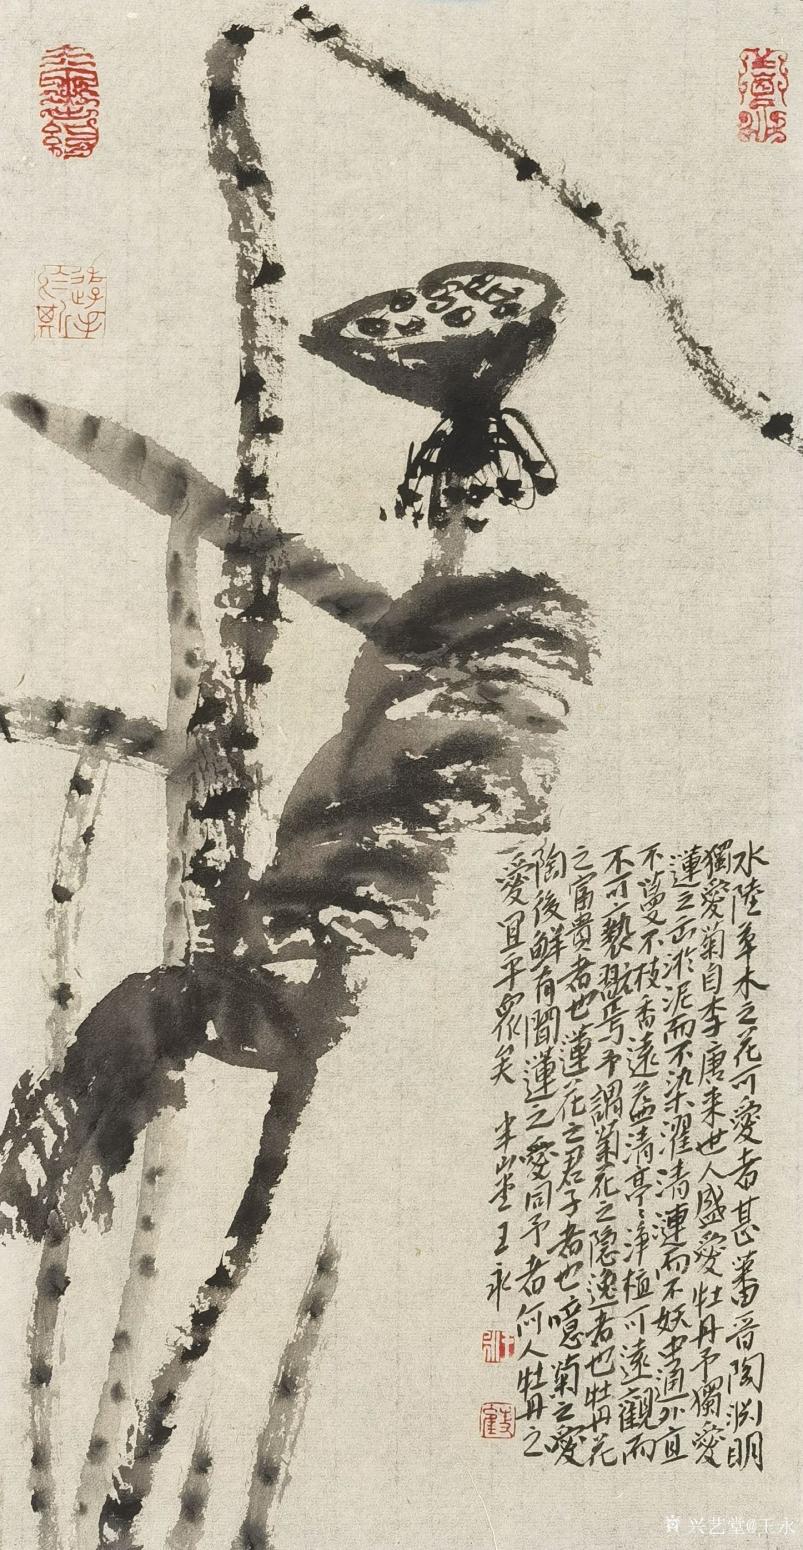 水陸草木之花可愛者甚蕃晋陶渊明
獨愛菊自李唐来世人盛愛牡丹予獨愛
蓮之出淤泥而不染濯清漣而不妖中通外直
不蔓不枝香遠益清亭々淨植可遠觀而
不可褻翫焉予謂菊花之隐逸者也牡丹花
之富貴者也蓮花之君子者也噫菊之愛
陶後鮮有聞蓮之愛同予者何人牡丹之
愛宜乎衆矣 半山堂王永
兴艺堂@王永